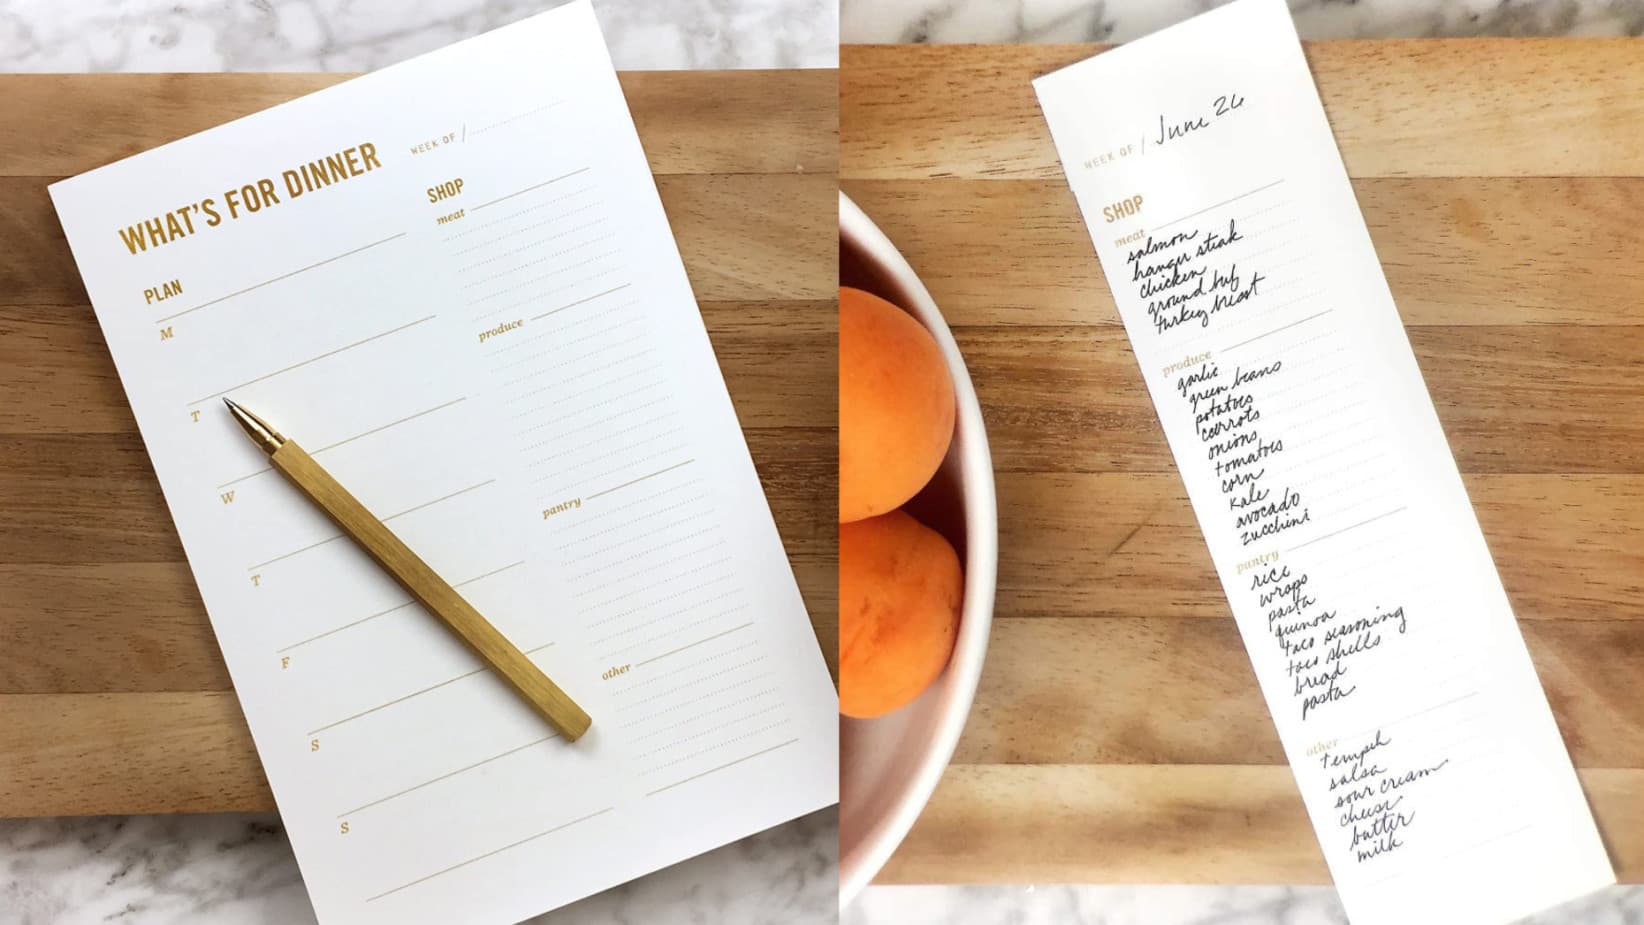 WHAT'S FOR DINNER
WEEK OF /
PLAN
M
T
W
T
F
S
S
SHOP
meat
produce
pantry
other
WEEK OF / June 26
SHOP
meat
salmon
hanger steak
chicken
ground beef
turkey breast
produce
garlic
green beans
potatoes
carrots
onions
tomatoes
corn
kale
avocado
zucchini
pantry
rice
wraps
pasta
quinoa
taco seasoning
taco shells
bread
pasta
other
tempeh
salsa
sour cream
cheese
butter
milk